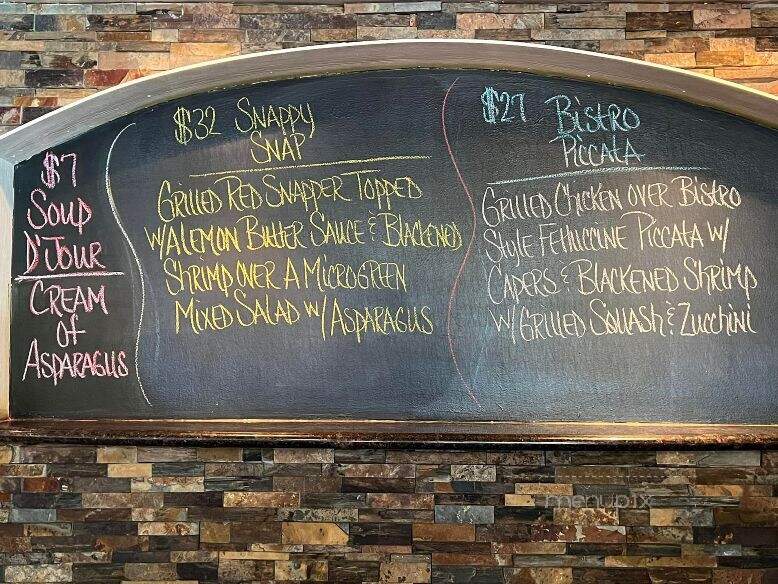 $7
Soup
D'Jour
Cream
of
Asparagus
$32 Snappy
Snap
Grilled Red Snapper Topped
w/ A Lemon Butter Sauce & Blackened
Shrimp over A Microgreen
Mixed Salad w/ Asparagus
$27 Bistro
Piccata
Grilled Chicken over Bistro
Style Fettuccine Piccata w/
Capers & Blackened Shrimp
w/ Grilled Squash & Zucchini
menupix